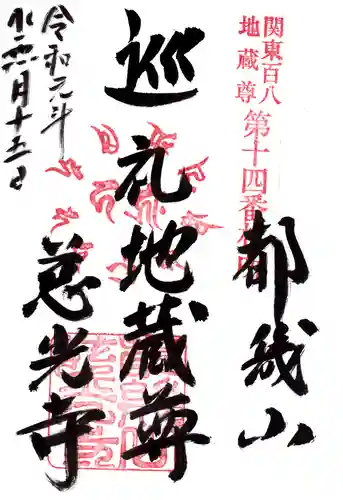 関東百八
地蔵尊
第十四番
都幾山
巡礼地蔵尊
慈光寺
令和元年
十五日